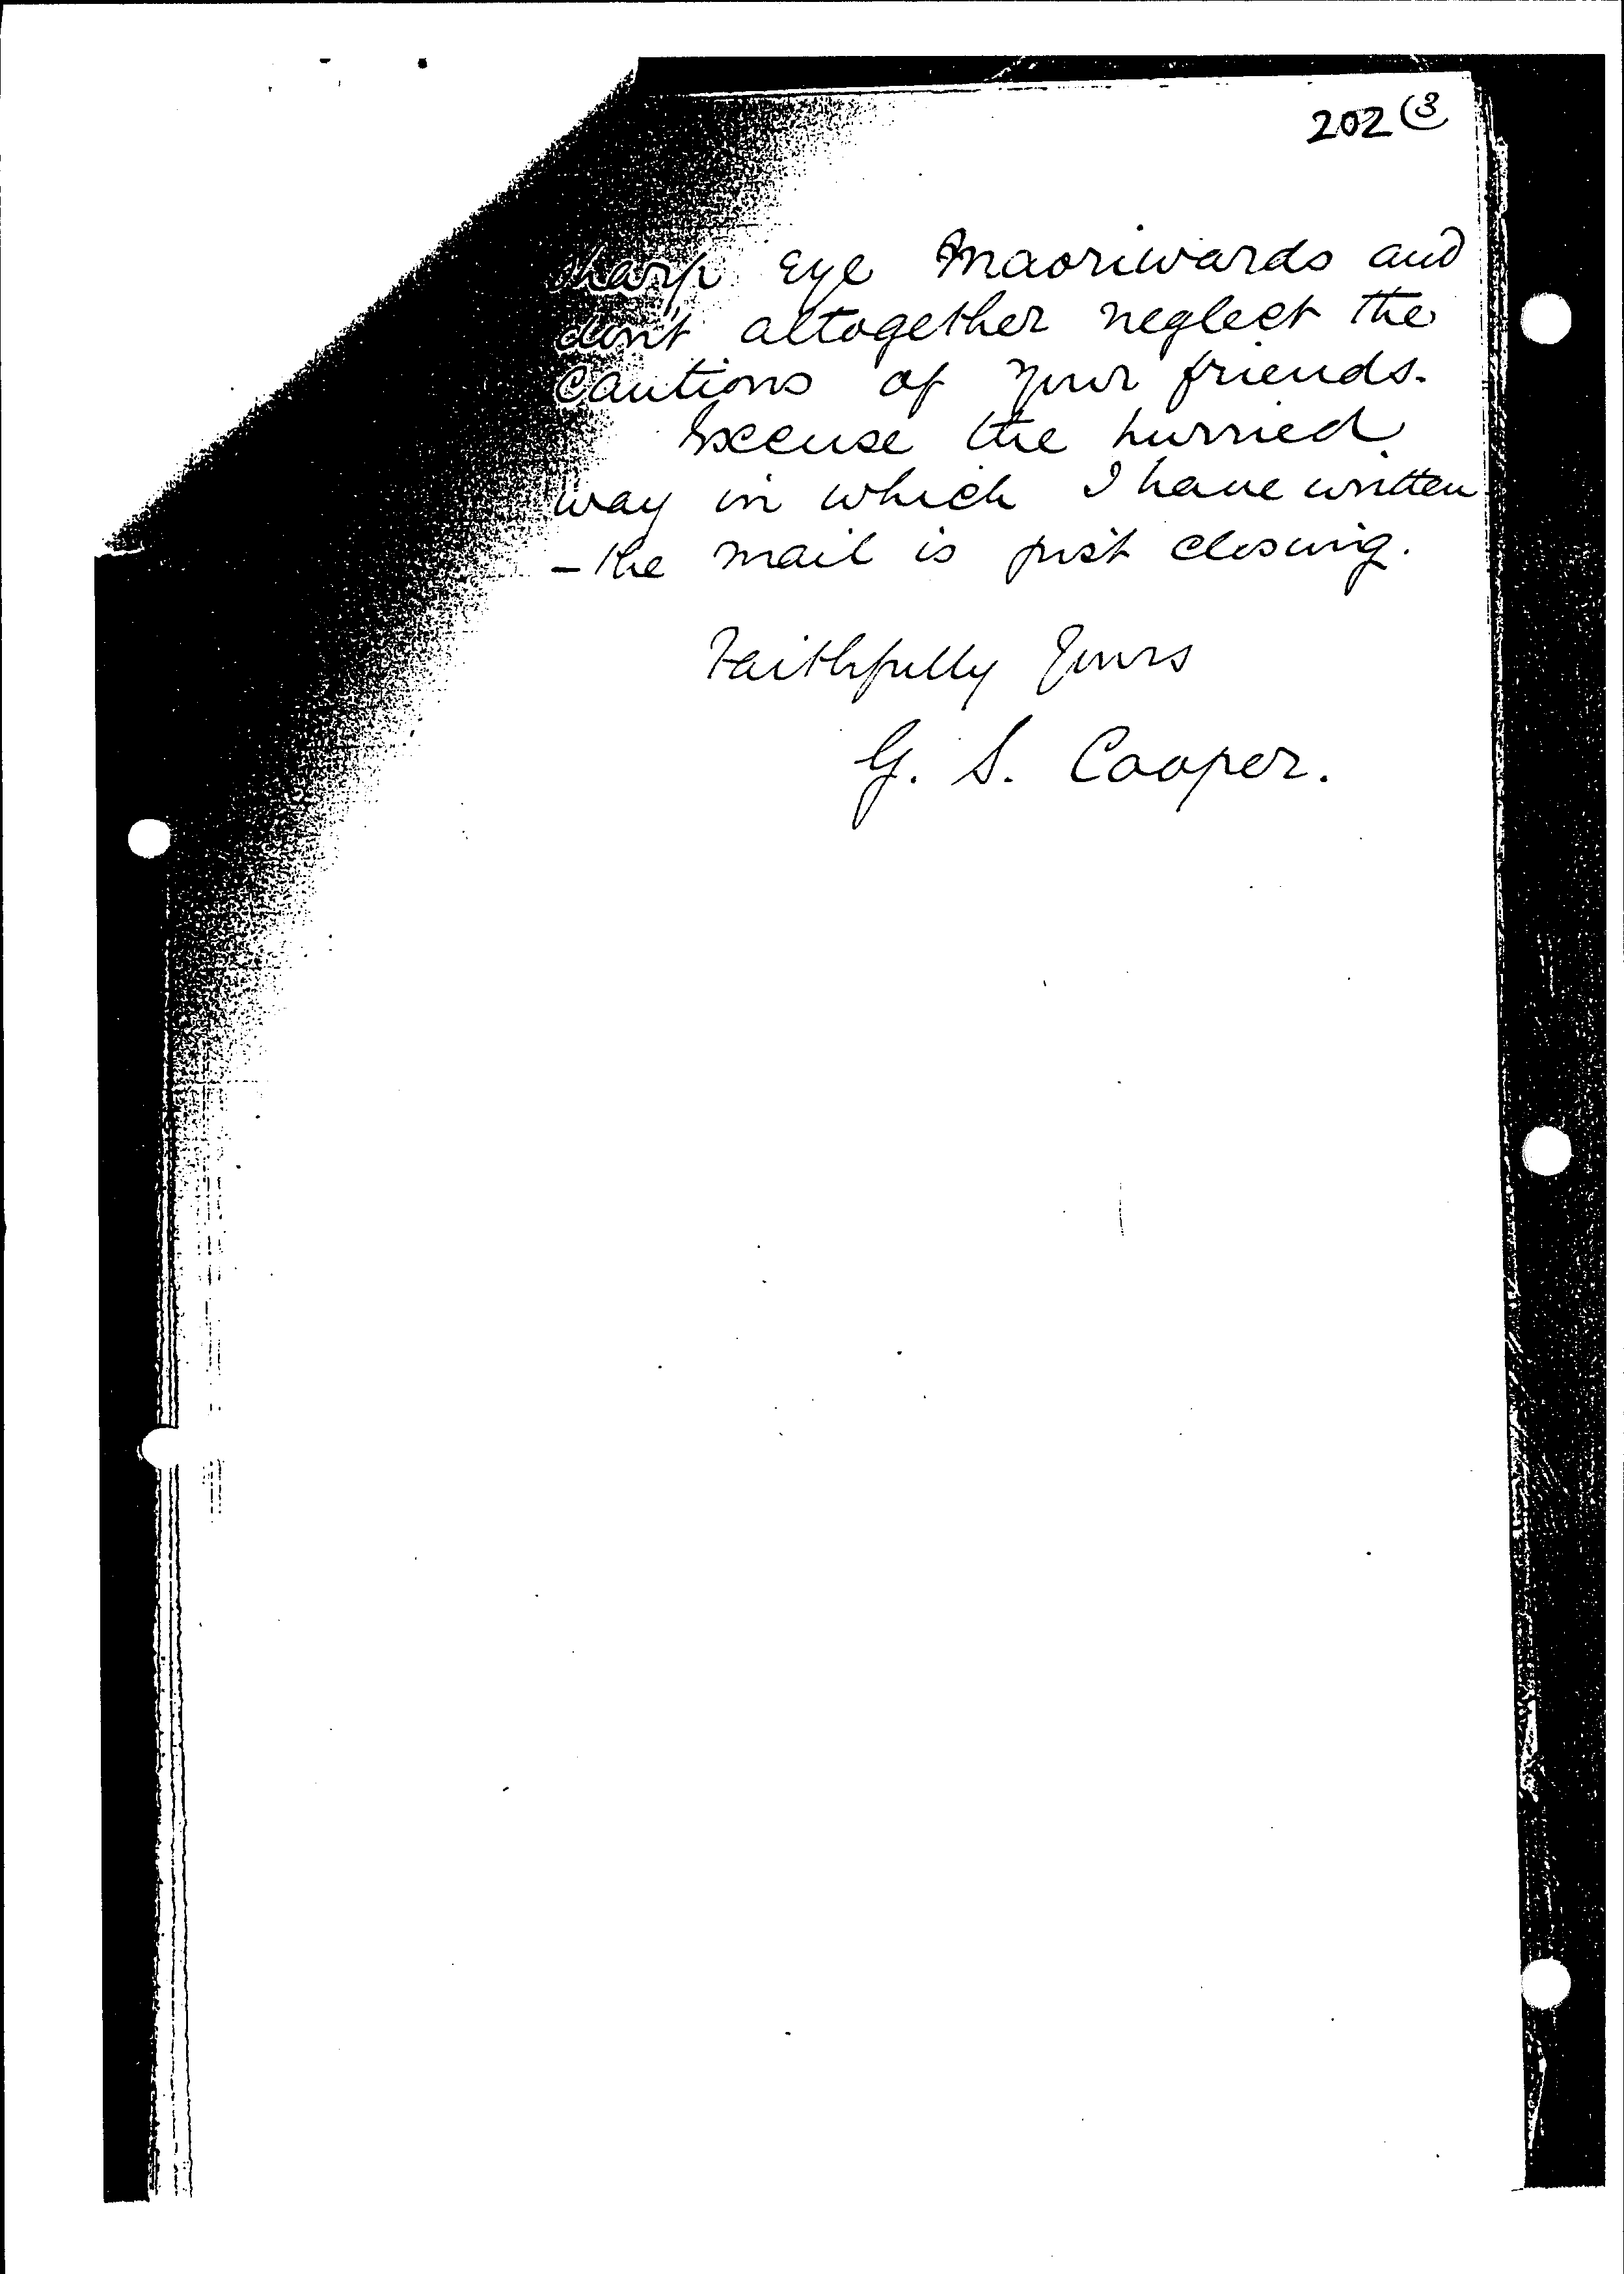 202 (3)
sharp eye Maoriwards and
don't altogether neglect the
cautions of your friends.
Excuse the hurried
way in which I have written
- the mail is just closing.
Faithfully Yours
G. S. Cooper.